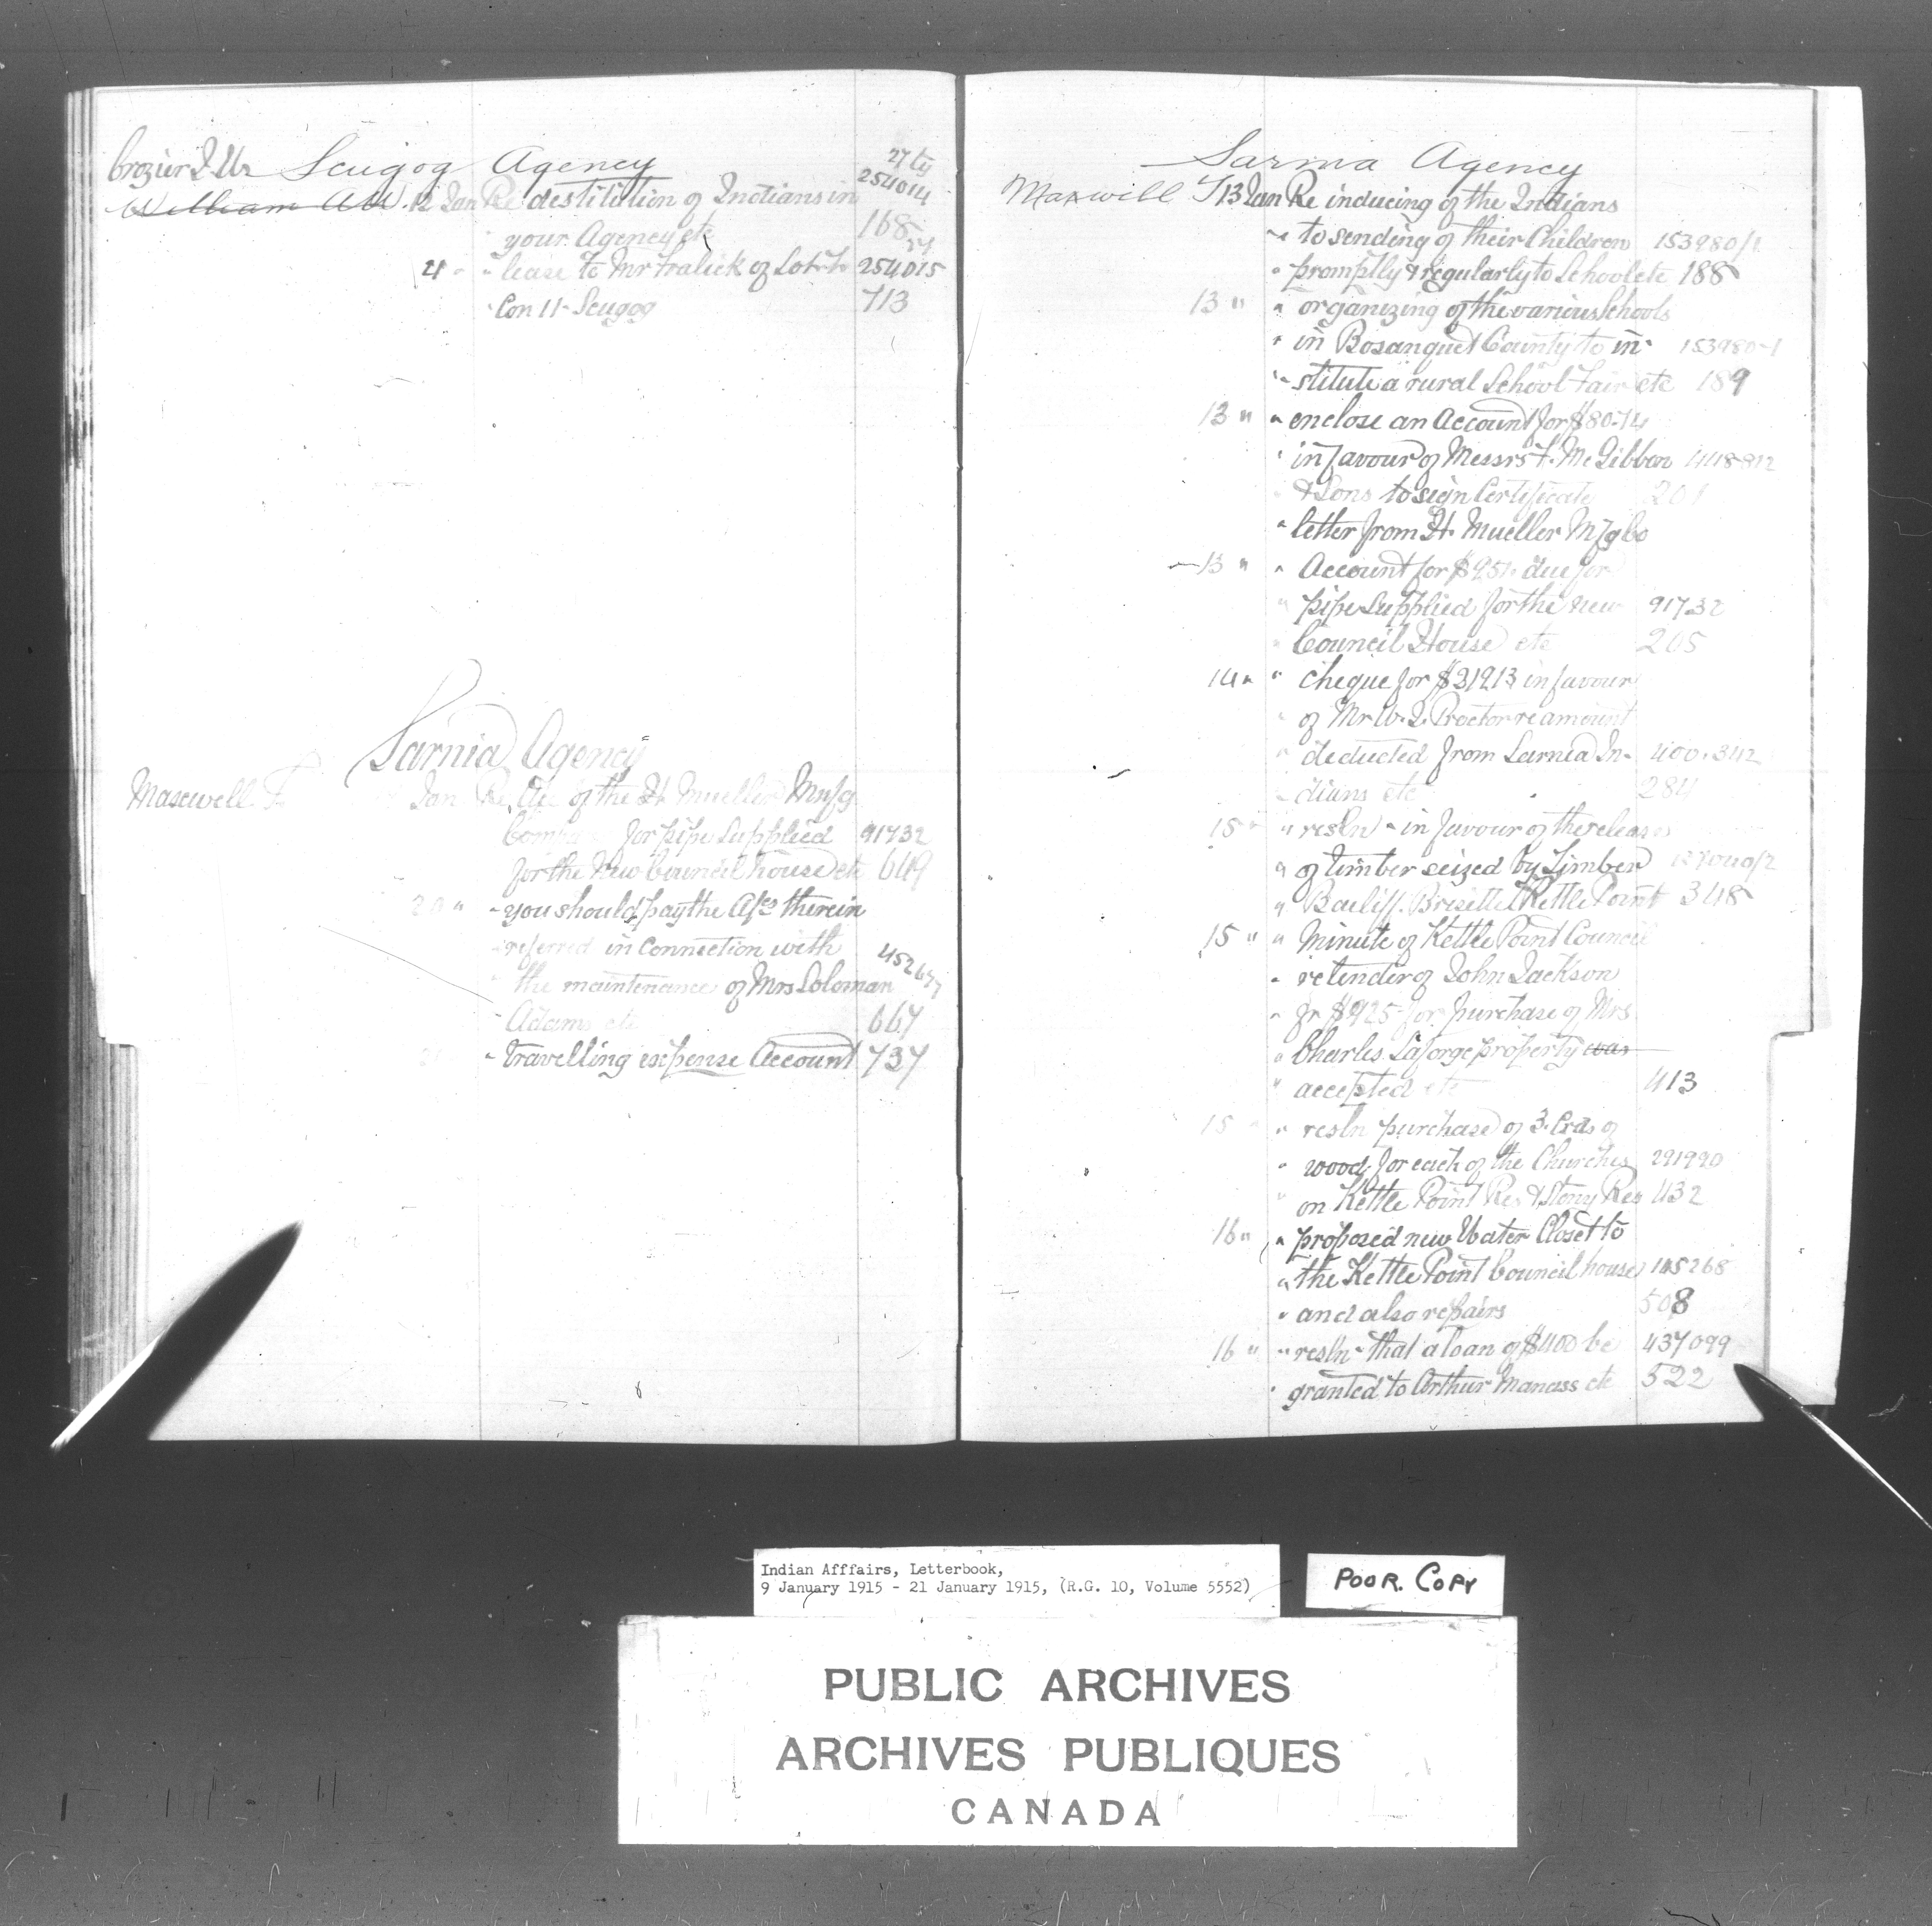 Scugog Agency
Crozier J. W.
27 ty
254014
William A W. 12 Jan Re destitution of Indians in
" your Agency etc 168
27
21 " " lease to Mr Fralick of Lot
254015
" Con 11 - Scugog 713
Sarnia Agency
Maxwell T. Jan Re A/c of the H. Mueller Mnfg
Company for pipe supplied 91732
for the New Council house etc 649
20 " " you should pay the A/cs therein
" referred in connection with
" the maintenance of Mrs Soloman 45267
Adams etc 667
" travelling expense Account 737
Sarnia Agency
Maxwell T 13 Jan Re inducing of the Indians
" to sending of their Children 153980/1
" promptly & regularly to School etc 188
13 " " organizing of the various Schools
" in Bosanquet County to in- 153980-1
" stitute a rural School Fair etc 189
13 " " enclose an Account for $80.74
" in favour of Messrs F. McGibbon 448812
& Sons to sign Certificate 201
" letter from H. Mueller Mfg Co
13 " " Account for $951. due for
" pipe supplied for the new 91732
" Council House etc 205
14 " " cheque for $219.13 in favour
" of Mr W. J. Proctor re amount
" deducted from Sarnia In- 400.342
dians etc 284
15 " " resln " in favour of the release
" of timber seized by Timber
" Bailiff. Brisette Kettle Point 348
15 " " Minute of Kettle Point Council
" re tender of John Jackson
" fr $925 for purchase of Mrs
" Charles Laforge property was
" accepted etc 413
15 " " resln purchase of 3 Crds of
" wood for each of the Churches 291990
" on Kettle Point Res & Stony Res 432
16 " " proposed new Water Closet to
" the Kettle Point Council house 145268
" and also repairs 508
16 " " resln " that a loan of $400 be 437099
" granted to Arthur Manass etc 522
Indian Afffairs, Letterbook,
9 January 1915 - 21 January 1915, (R.G. 10, Volume 5552)
POOR. COPY
PUBLIC ARCHIVES
ARCHIVES PUBLIQUES
CANADA